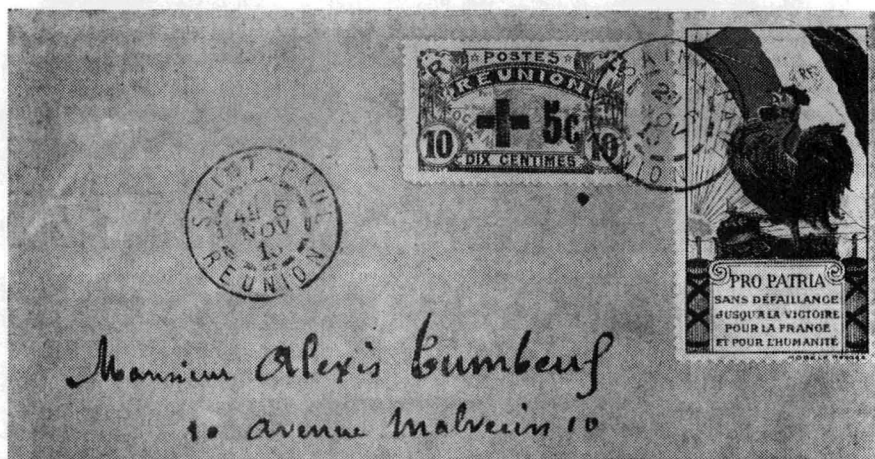 POSTES
REUNION
10 + 5c 10
DIX CENTIMES
SAINT-PAUL
NOV
REUNION
SAINT PAUL
NOV
REUNION
PRO PATRIA
SANS DÉFAILLANCE
JUSQU'A LA VICTOIRE
POUR LA FRANCE
ET POUR L'HUMANITÉ
Monsieur Alexis
10 avenue 10